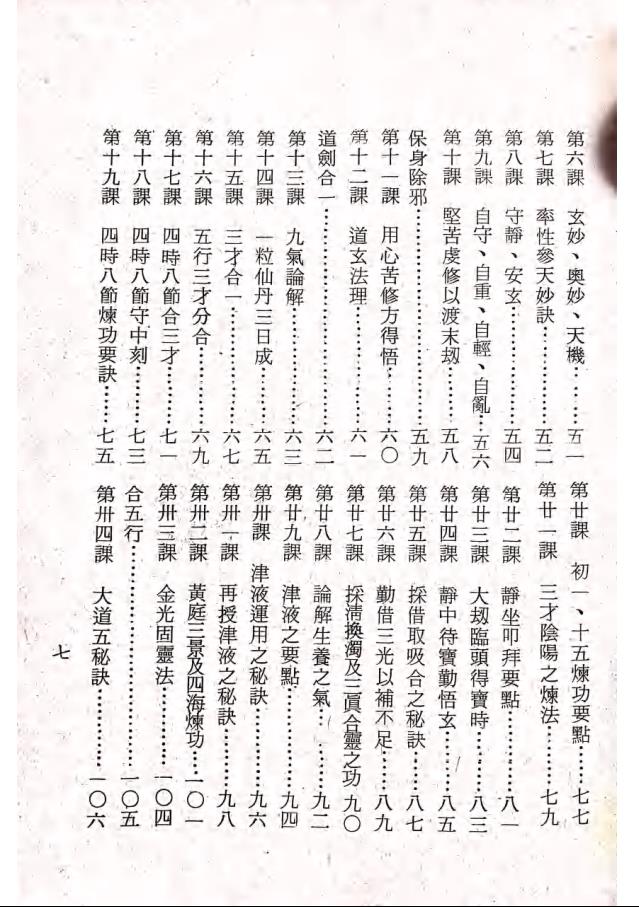 第六課　玄妙、奧妙、天機………五一
第七課　率性參天妙訣……………五二
第八課　守靜、安玄………………五四
第九課　自守、自重、自輕、自亂…五六
第十課　堅苦虔修以渡末刼………五八
保身除邪……………………………五九
第十一課　用心苦修方得悟………六〇
第十二課　道玄法理………………六一
道劍合一……………………………六二
第十三課　九氣論解………………六三
第十四課　一粒仙丹三日成………六五
第十五課　三才合一………………六七
第十六課　五行三才分合…………六九
第十七課　四時八節合三才………七一
第十八課　四時八節守中刻………七三
第十九課　四時八節煉功要訣……七五
第廿課　初一、十五煉功要點……七七
第廿一課　三才陰陽之煉法………七九
第廿二課　靜坐叩拜要點…………八一
第廿三課　大刼臨頭得寶時………八三
第廿四課　靜中待寶勤悟玄………八五
第廿五課　採借取吸合之秘訣……八七
第廿六課　勤借三光以補不足……八九
第廿七課　採淸換濁及三眞合靈之功　九〇
第廿八課　論解生養之氣…………九二
第廿九課　津液之要點……………九四
第卅課　津液運用之秘訣…………九六
第卅一課　再授津液之秘訣………九八
第卅二課　黃庭三景及四海煉功…一〇一
第卅三課　金光固靈法……………一〇四
合五行………………………………一〇五
第卅四課　大道五秘訣……………一〇六
七